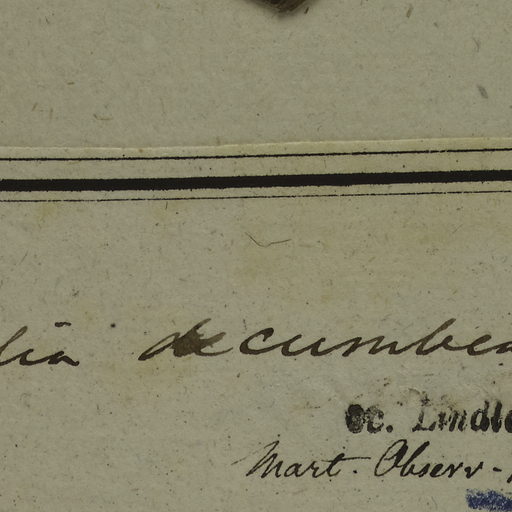 lia decumben
oc. Lindle
Mart. Observ.